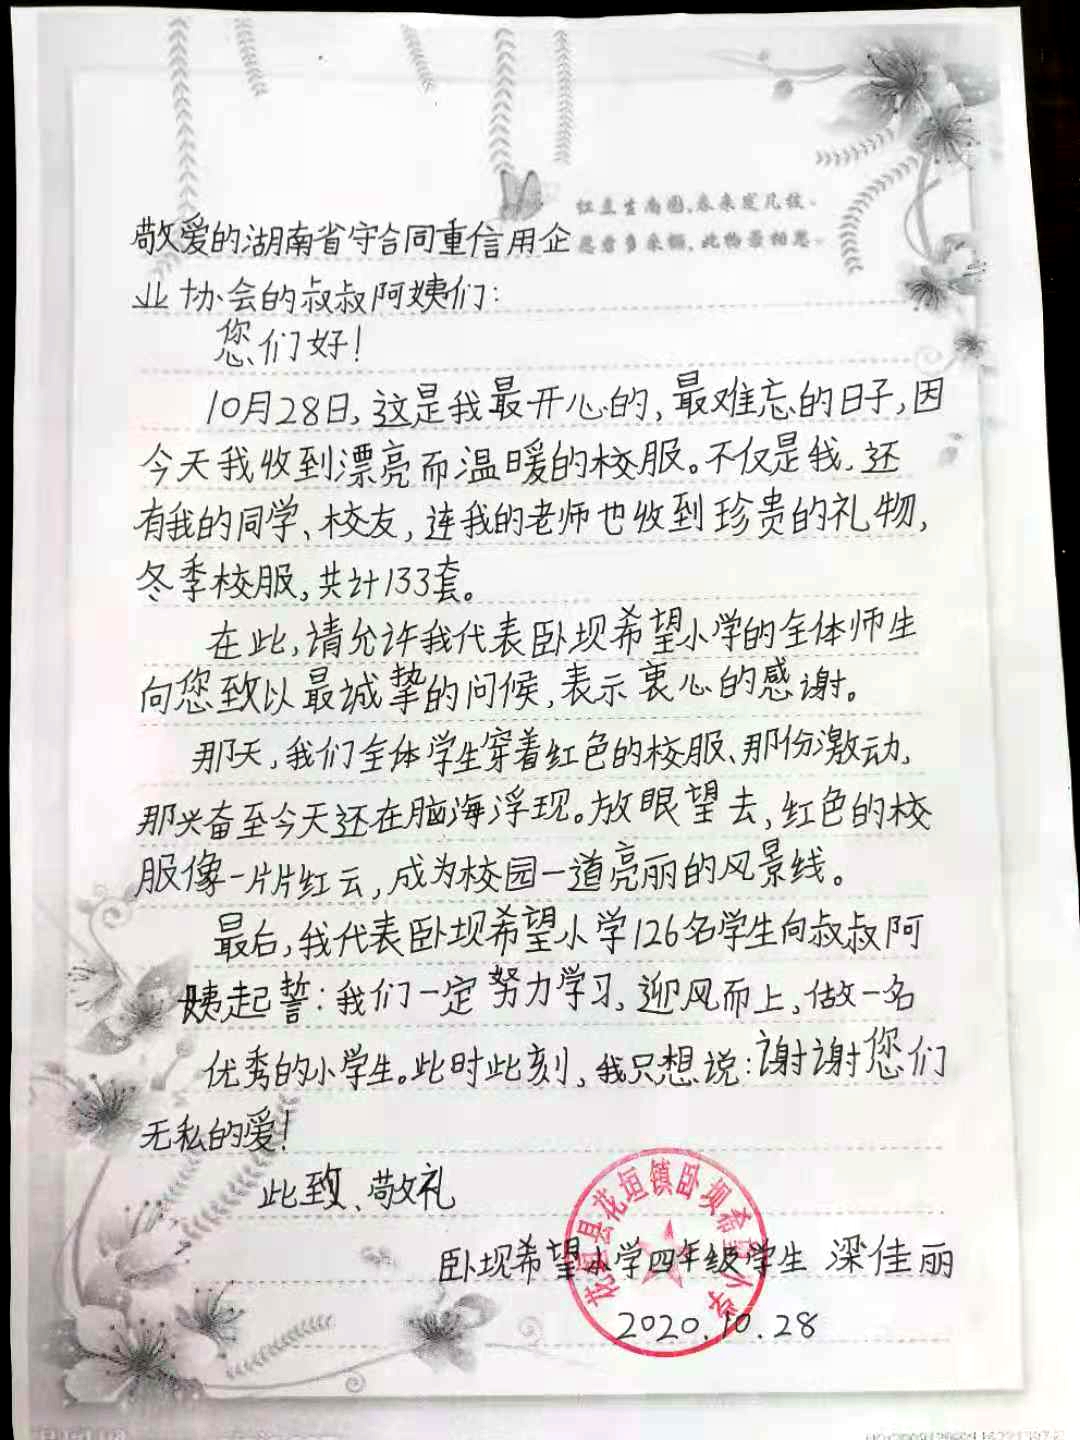 红豆生南国,春来发几枝。
愿君多采撷,此物最相思。
敬爱的湖南省守合同重信用企
业协会的叔叔阿姨们:
您们好!
10月28日,这是我最开心的,最难忘的日子,因
今天我收到漂亮而温暖的校服。不仅是我,还
有我的同学、校友,连我的老师也收到珍贵的礼物,
冬季校服,共计133套。
在此,请允许我代表卧坝希望小学的全体师生
向您致以最诚挚的问候,表示衷心的感谢。
那天,我们全体学生穿着红色的校服、那份激动,
那兴奋至今天还在脑海浮现。放眼望去,红色的校
服像一片片红云,成为校园一道亮丽的风景线。
最后,我代表卧坝希望小学126名学生向叔叔阿
姨起誓:我们一定努力学习,迎风而上,做一名
优秀的小学生。此时此刻,我只想说:谢谢您们
无私的爱!
此致、敬礼
花垣县花垣镇卧坝希望小学
卧坝希望小学四年级学生 梁佳丽
2020.10.28